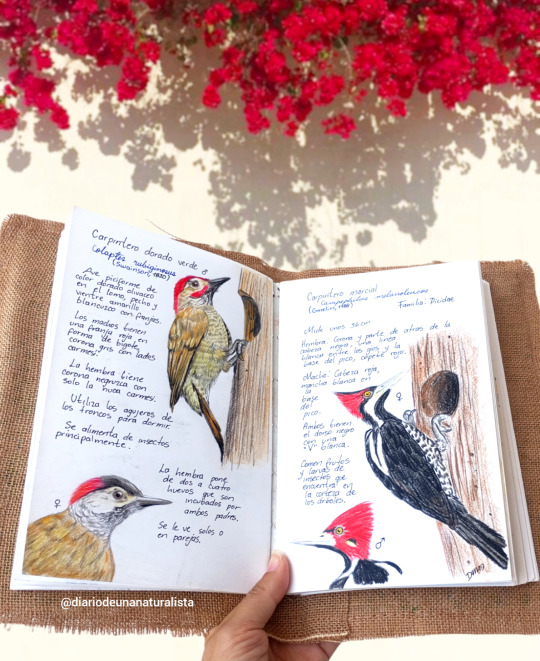 Carpintero dorado verde ♂
Colaptes rubiginosus
(Swainson 1820)
Ave piciforme de
color dorado olivaceo
en el lomo, pecho y
vientre amarillo
blancuzco con franjas.
Los machos tienen
una franja roja en
forma de bigote,
corona gris con lados
carmesí.
La hembra tiene
corona negruzca con
solo la nuca carmesí.
Utiliza los agujeros de
los troncos para dormir.
Se alimenta de insectos
principalmente.
♀
La hembra pone
de dos a cuatro
huevos que son
incubados por
ambos padres.
Se le ve solos o
en parejas.
Carpintero marcial
Campephilus melanoleucos
(Gmelin, 1788)
Familia: Picidae
Mide unos 36 cm
Hembra: Corona y parte de atras de la
cabeza negra, una linea
blanca entre los ojos y la
base del pico, copete rojo.
Macho: Cabeza roja,
mancha blanca en
la
base
del
pico.
♀
Ambos tienen
el dorso negro
con una
"V" blanca.
Comen frutos
y larvas de
insectos que
encuentra en
la corteza de
los árboles.
♂
@diariodeunanaturalista